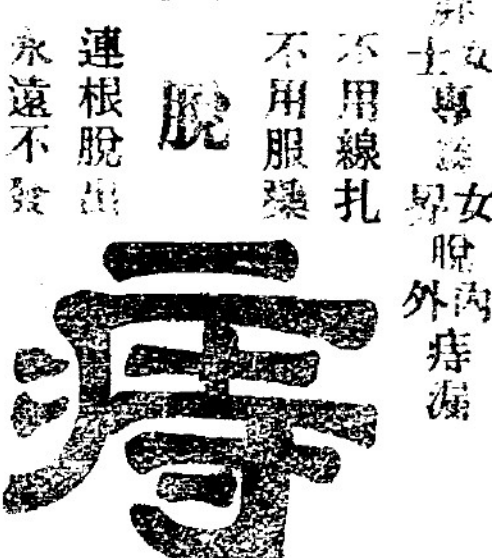 女士專治男女脫內外痔漏
不用線扎
不用服藥
脫痔
連根脫出
永遠不發